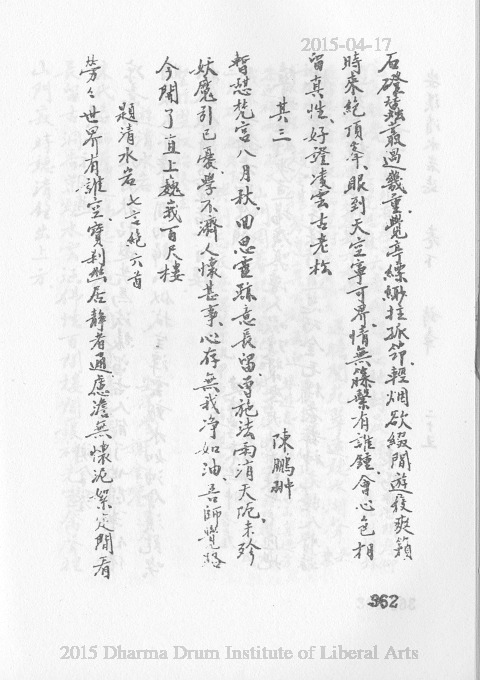 2015-04-17
石磴盤叢過幾重覺亭縹緲拄孤筇輕烟欲綴閒遊屐爽籟
時來絕頂峯眼到天空寧可界情無縧繫有誰鍾會心色相
留真性好證凌雲古老松
其三
陳鵬翀
暫憇梵宮八月秋田思靈跡意長留曾施法雨消天阨未殄
妖魔引已憂學不濟人懷甚事心存無我净如油吾師覺路
今開了直上巍峩百尺樓
題清水岩七言絕六首
勞々世界有誰空寶剎然居靜者通慮澹無懷泥絮定閒看
362
2015 Dharma Drum Institute of Liberal Arts